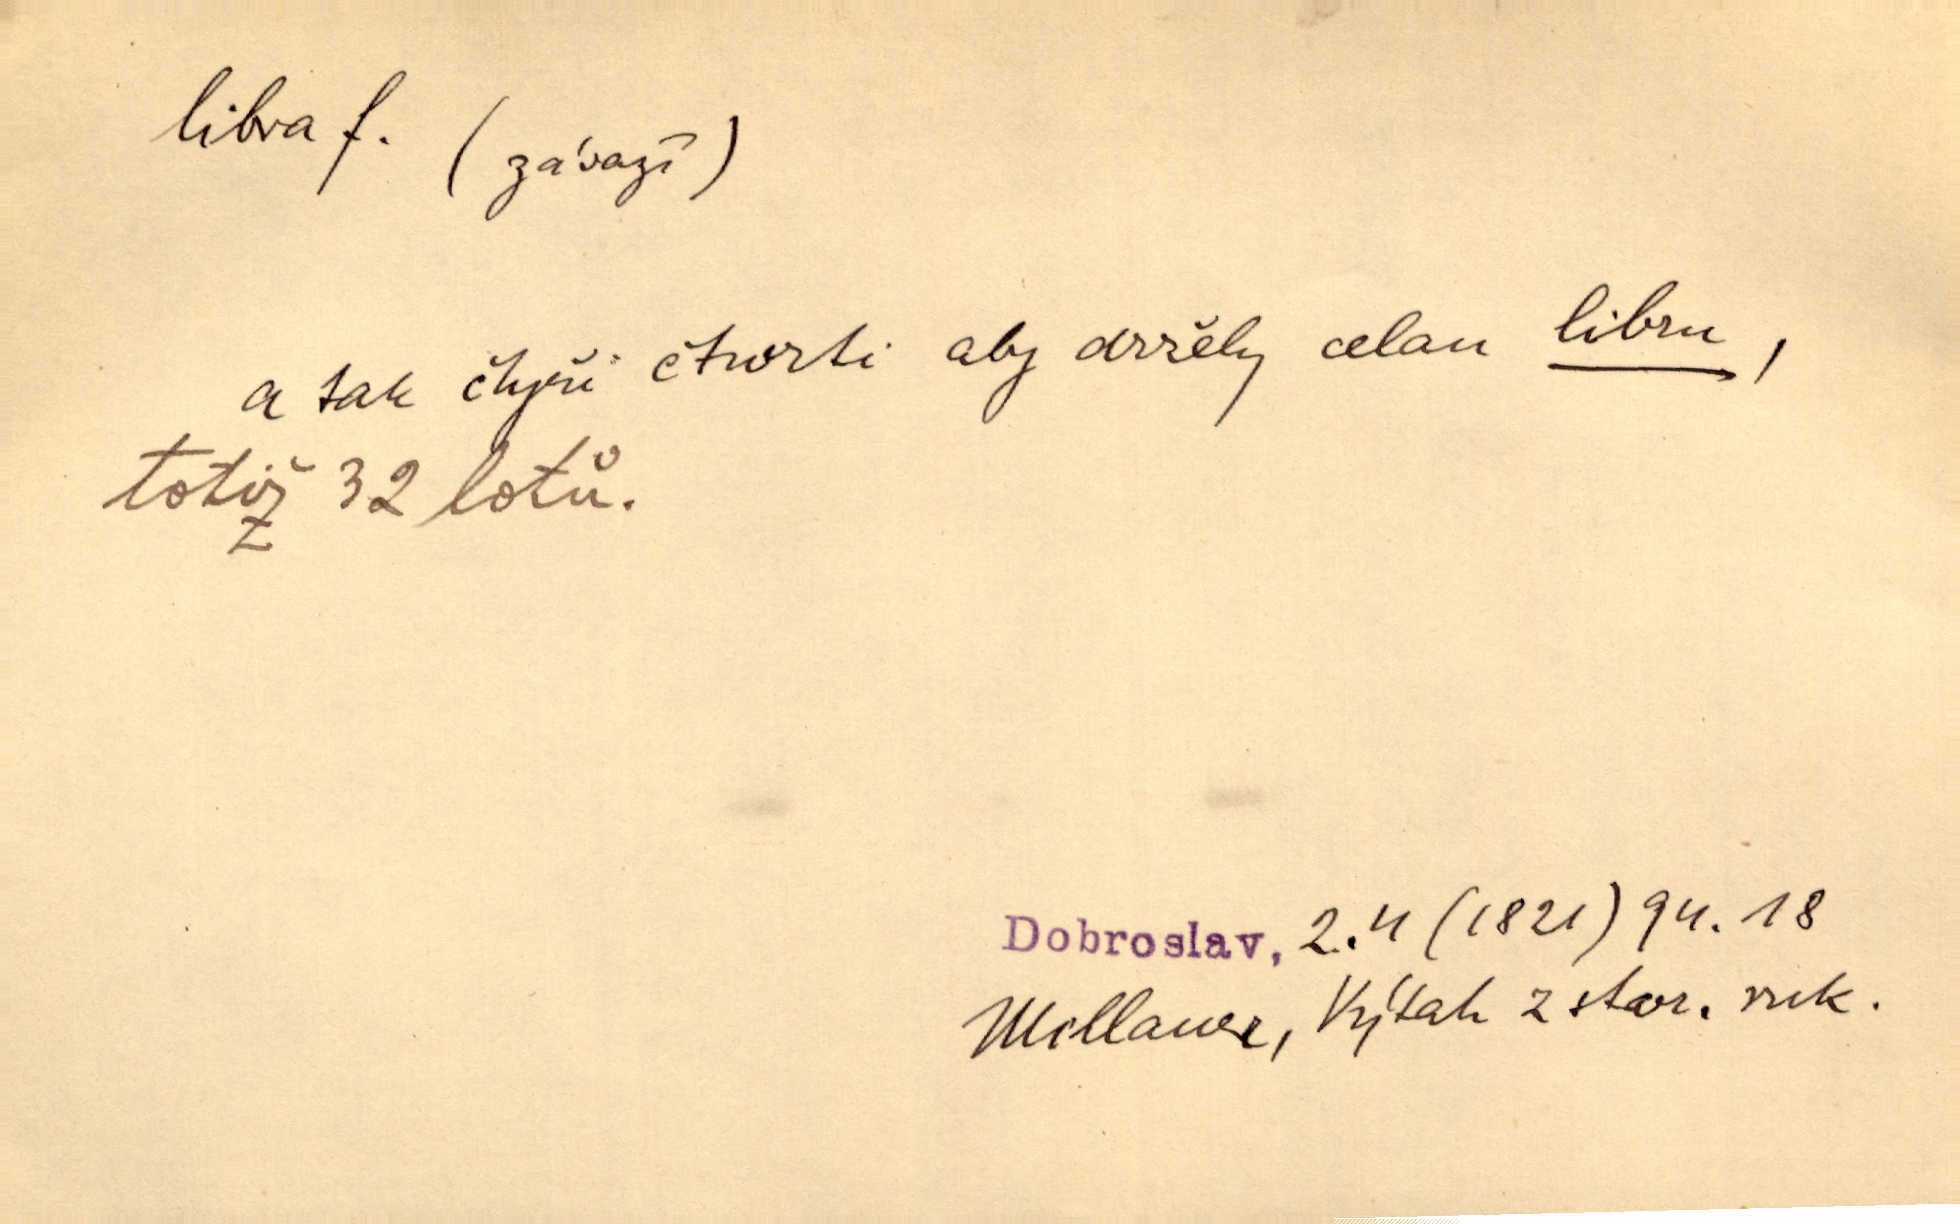 libra f. (závazí)
a tak čtyři čtvrti aby držely celau libru,
totiž 32 lotů.
Dobroslav, 2.4 (1821) 94. 18
Millauer, Výtah z star. ruk.